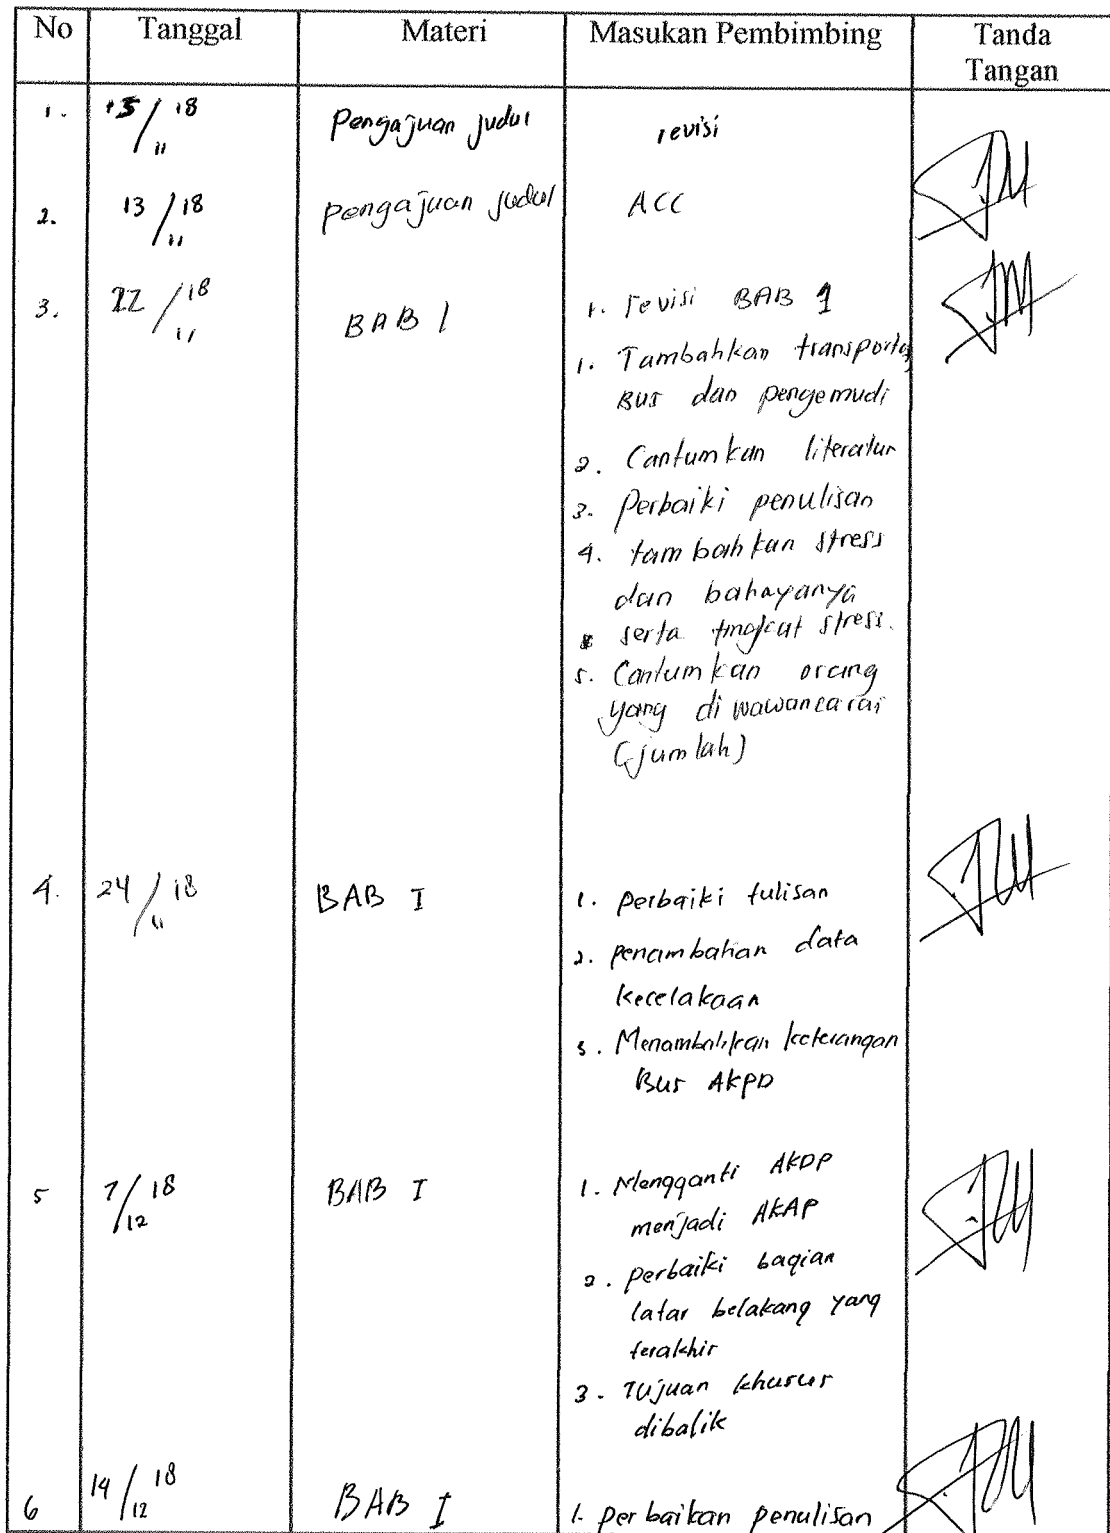 No Tanggal Materi Masukan Pembimbing Tanda
Tangan
1. 18/11 Pengajuan judul revisi
2. 13/11 18 pengajuan judul ACC
3. 22/11 18 BAB 1 1. revisi BAB 1
1. Tambahkan transportasi
Bus dan pengemudi
2. Cantumkan literatur
3. Perbaiki penulisan
4. tambahkan stress
dan bahayanya
serta tingkat stress.
5. Cantumkan orang
yang di wawancarai
(jumlah)
4. 24/11 18 BAB I 1. perbaiki tulisan
2. penambahan data
kecelakaan
3. Menambahkan keterangan
Bus AKPD
5 7/12 18 BAB I 1. Mengganti AKDP
menjadi AKAP
2. perbaiki bagian
latar belakang yang
terakhir
3. Tujuan khusus
dibalik
6 14/12 18 BAB I 1. perbaikan penulisan